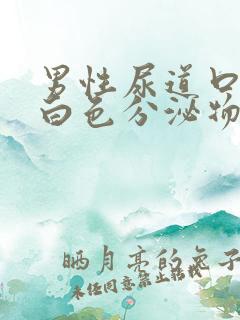 男性尿道口
白色分泌物
晒月亮的兔子
未经同意禁止转载